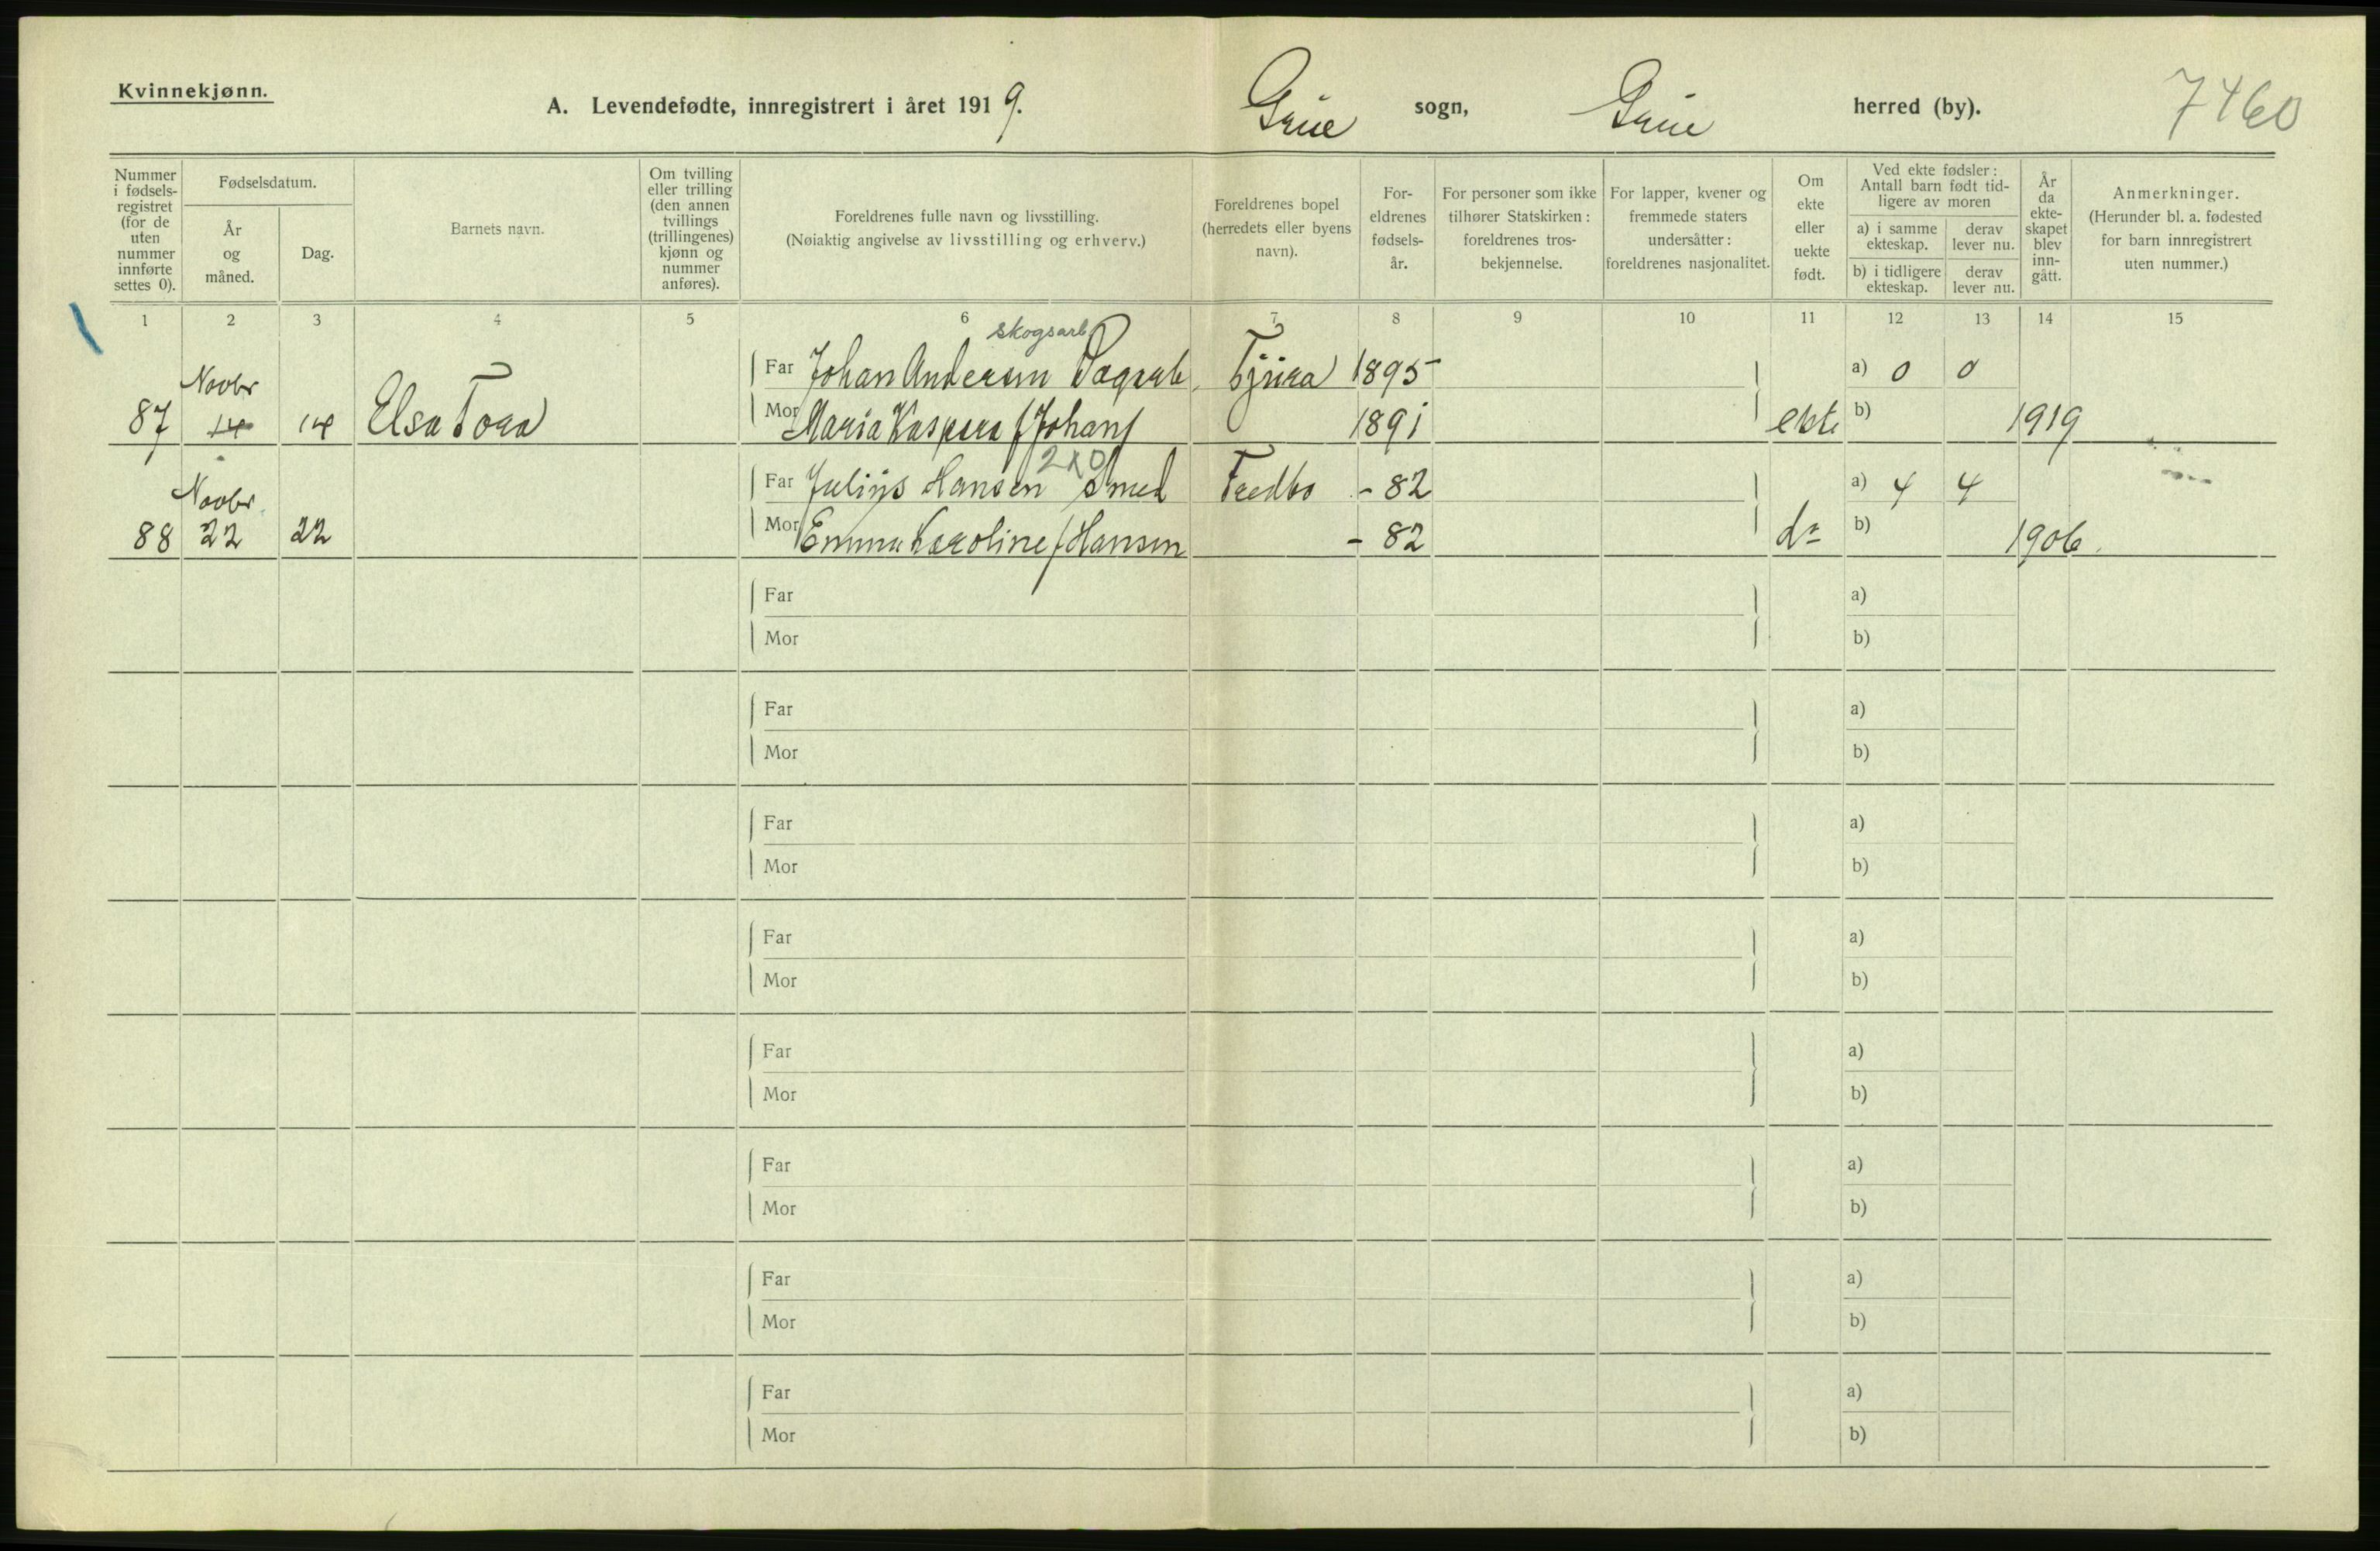 Kvinnekjønn.
A. Levendefødte, innregistrert i året 1919. Grue sogn, Grue herred (by). 7460
Nummer i fødselsregistret (for de uten nummer innførte settes 0).
Fødselsdatum.
År og måned.
Dag.
Barnets navn.
Om tvilling eller trilling (den annen tvillings (trillingenes) kjønn og nummer anføres).
Foreldrenes fulle navn og livsstilling.
(Nøiaktig angivelse av livsstilling og erhverv.)
Foreldrenes bopel (herredets eller byens navn).
Foreldrenes fødselsår.
For personer som ikke tilhører Statskirken: foreldrenes trosbekjennelse.
For lapper, kvener og fremmede staters undersåtter: foreldrenes nasjonalitet.
Om ekte eller uekte født.
Ved ekte fødsler: Antall barn født tidligere av moren
a) i samme ekteskap.
derav lever nu.
b) i tidligere ekteskap.
derav lever nu.
År da ekteskapet blev inngått.
Anmerkninger.
(Herunder bl. a. fødested for barn innregistrert uten nummer.)
1 2 3 4 5 6 7 8 9 10 11 12 13 14 15
skogsarb
Novbr Far Johan Andersen Dagarb. Tjura 1895 a) 0 0
87 14 14 Elsa Tora Mor Maria Kaspara f Johans 1891 ekte b) 1919
210
Novbr. Far Julius Hansen Smed - 82 a) 4 4
88 22 22 Mor Emma Karoline f Hansen - 82 do b) 1906.
Far a)
Mor b)
Far a)
Mor b)
Far a)
Mor b)
Far a)
Mor b)
Far a)
Mor b)
Far a)
Mor b)
Far a)
Mor b)
Far a)
Mor b)